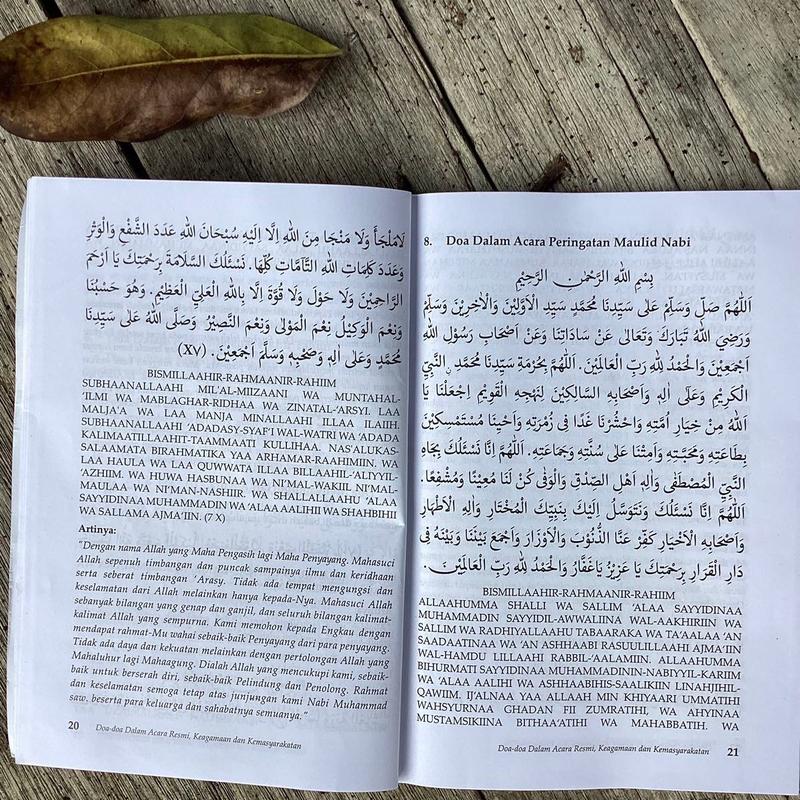 لَامَلْجَأَ وَلَا مَنْجَا مِنَ اللهِ اِلَّا اِلَيْهِ سُبْحَانَ اللهِ عَدَدَ الشَّفْعِ وَالْوَتْرِ
وَعَدَدَ كَلِمَاتِ اللهِ التَّآمَّاتِ كُلِّهَا. نَسْئَلُكَ السَّلَامَةَ بِرَحْمَتِكَ يَا اَرْحَمَ
الرَّاحِمِيْنَ وَلَا حَوْلَ وَلَا قُوَّةَ اِلَّا بِاللهِ الْعَلِيِّ الْعَظِيْمِ. وَهُوَ حَسْبُنَا
وَنِعْمَ الْوَكِيْلُ نِعْمَ الْمَوْلٰى وَنِعْمَ النَّصِيْرُ وَصَلَّى اللهُ عَلٰى سَيِّدِنَا
مُحَمَّدٍ وَعَلٰى اٰلِهِ وَصَحْبِهِ وَسَلَّمَ اَجْمَعِيْنَ. (X٧)
BISMILLAAHIR-RAHMAANIR-RAHIIM
SUBHAANALLAAHI MIL'AL-MIIZAANI WA MUNTAHAL-
'ILMI WA MABLAGHAR-RIDHAA WA ZINATAL-'ARSYI. LAA
MALJA'A WA LAA MANJA MINALLAAHI ILLAA ILAIIH.
SUBHAANALLAAHI 'ADADASY-SYAF'I WAL-WATRI WA 'ADADA
KALIMAATILLAAHIT-TAAMMAATI KULLIHAA. NAS'ALUKAS-
SALAAMATA BIRAHMATIKA YAA ARHAMAR-RAAHIMIIN. WA
LAA HAULA WA LAA QUWWATA ILLAA BILLAAHIL-'ALIYYIL-
'AZHIIM. WA HUWA HASBUNAA WA NI'MAL-WAKIIL NI'MAL-
MAULAA WA NI'MAN-NASHIIR. WA SHALLALLAAHU 'ALAA
SAYYIDINAA MUHAMMADIN WA 'ALAA AALIHII WA SHAHBIHII
WA SALLAMA AJMA'IIN. (7 X)
Artinya:
"Dengan nama Allah yang Maha Pengasih lagi Maha Penyayang. Mahasuci
Allah sepenuh timbangan dan puncak sampainya ilmu dan keridhaan
serta seberat timbangan 'Arasy. Tidak ada tempat mengungsi dan
keselamatan dari Allah melainkan hanya kepada-Nya. Mahasuci Allah
sebanyak bilangan yang genap dan ganjil, dan seluruh bilangan kalimat-
kalimat Allah yang sempurna. Kami memohon kepada Engkau dengan
mendapat rahmat-Mu wahai sebaik-baik Penyayang dari para penyayang.
Tidak ada daya dan kekuatan melainkan dengan pertolongan Allah yang
Mahaluhur lagi Mahaagung. Dialah Allah yang mencukupi kami, sebaik-
baik untuk berserah diri, sebaik-baik Pelindung dan Penolong. Rahmat
dan keselamatan semoga tetap atas junjungan kami Nabi Muhammad
saw, beserta para keluarga dan sahabatnya semuanya."
20 Doa-doa Dalam Acara Resmi, Keagamaan dan Kemasyarakatan
8. Doa Dalam Acara Peringatan Maulid Nabi
بِسْمِ اللهِ الرَّحْمٰنِ الرَّحِيْمِ
اَللّٰهُمَّ صَلِّ وَسَلِّمْ عَلٰى سَيِّدِنَا مُحَمَّدٍ سَيِّدِ الْاَوَّلِيْنَ وَالْاٰخِرِيْنَ وَسَلِّمْ
وَرَضِيَ اللهُ تَبَارَكَ وَتَعَالٰى عَنْ سَادَاتِنَا وَعَنْ اَصْحَابِ رَسُوْلِ اللهِ
اَجْمَعِيْنَ وَالْحَمْدُ لِلّٰهِ رَبِّ الْعَالَمِيْنَ. اَللّٰهُمَّ بِحُرْمَةِ سَيِّدِنَا مُحَمَّدٍ النَّبِيِّ
الْكَرِيْمِ وَعَلٰى اٰلِهِ وَاَصْحَابِهِ السَّالِكِيْنَ لِنَهْجِهِ الْقَوِيْمِ اِجْعَلْنَا يَا
اَللهُ مِنْ خِيَارِ اُمَّتِهِ وَاحْشُرْنَا غَدًا فِى زُمْرَتِهِ وَاَحْيِنَا مُسْتَمْسِكِيْنَ
بِطَاعَتِهِ وَمَحَبَّتِهِ وَاَمِتْنَا عَلٰى سُنَّتِهِ وَجَمَاعَتِهِ. اَللّٰهُمَّ اِنَّا نَسْئَلُكَ بِجَاهِ
النَّبِيِّ الْمُصْطَفٰى وَاٰلِهِ اَهْلِ الصِّدْقِ وَالْوَفٰى كُنْ لَنَا مُعِيْنًا وَمُشَفِّعًا.
اَللّٰهُمَّ اِنَّا نَسْئَلُكَ وَنَتَوَسَّلُ اِلَيْكَ بِنَبِيِّكَ الْمُخْتَارِ وَاٰلِهِ الْاَطْهَارِ
وَاَصْحَابِهِ الْاَخْيَارِ كَفِّرْ عَنَّا الذُّنُوْبَ وَالْاَوْزَارَ وَاجْمَعْ بَيْنَنَا وَبَيْنَهُ فِى
دَارِ الْقَرَارِ بِرَحْمَتِكَ يَا عَزِيْزُ يَاغَفَّارُ وَالْحَمْدُ لِلّٰهِ رَبِّ الْعَالَمِيْنَ.
BISMILLAAHIR-RAHMAANIR-RAHIIM
ALLAAHUMMA SHALLI WA SALLIM 'ALAA SAYYIDINAA
MUHAMMADIN SAYYIDIL-AWWALIINA WAL-AAKHIRIIN WA
SALLIM WA RADHIYALLAAHU TABAARAKA WA TA'AALAA 'AN
SAADAATINAA WA 'AN ASHHAABI RASUULILLAAHI AJMA'IIN
WAL-HAMDU LILLAAHI RABBIL-'AALAMIIN. ALLAAHUMMA
BIHURMATI SAYYIDINAA MUHAMMADININ-NABIYYIL-KARIIM
WA 'ALAA AALIHI WA ASHHAABIHIS-SAALIKIIN LINAHJIHIL-
QAWIIM. IJ'ALNAA YAA ALLAAH MIN KHIYAARI UMMATIHI
WAHSYURNAA GHADAN FII ZUMRATIHI, WA AHYINAA
MUSTAMSIKIINA BITHAA'ATIHI WA MAHABBATIH. WA
Doa-doa Dalam Acara Resmi, Keagamaan dan Kemasyarakatan 21